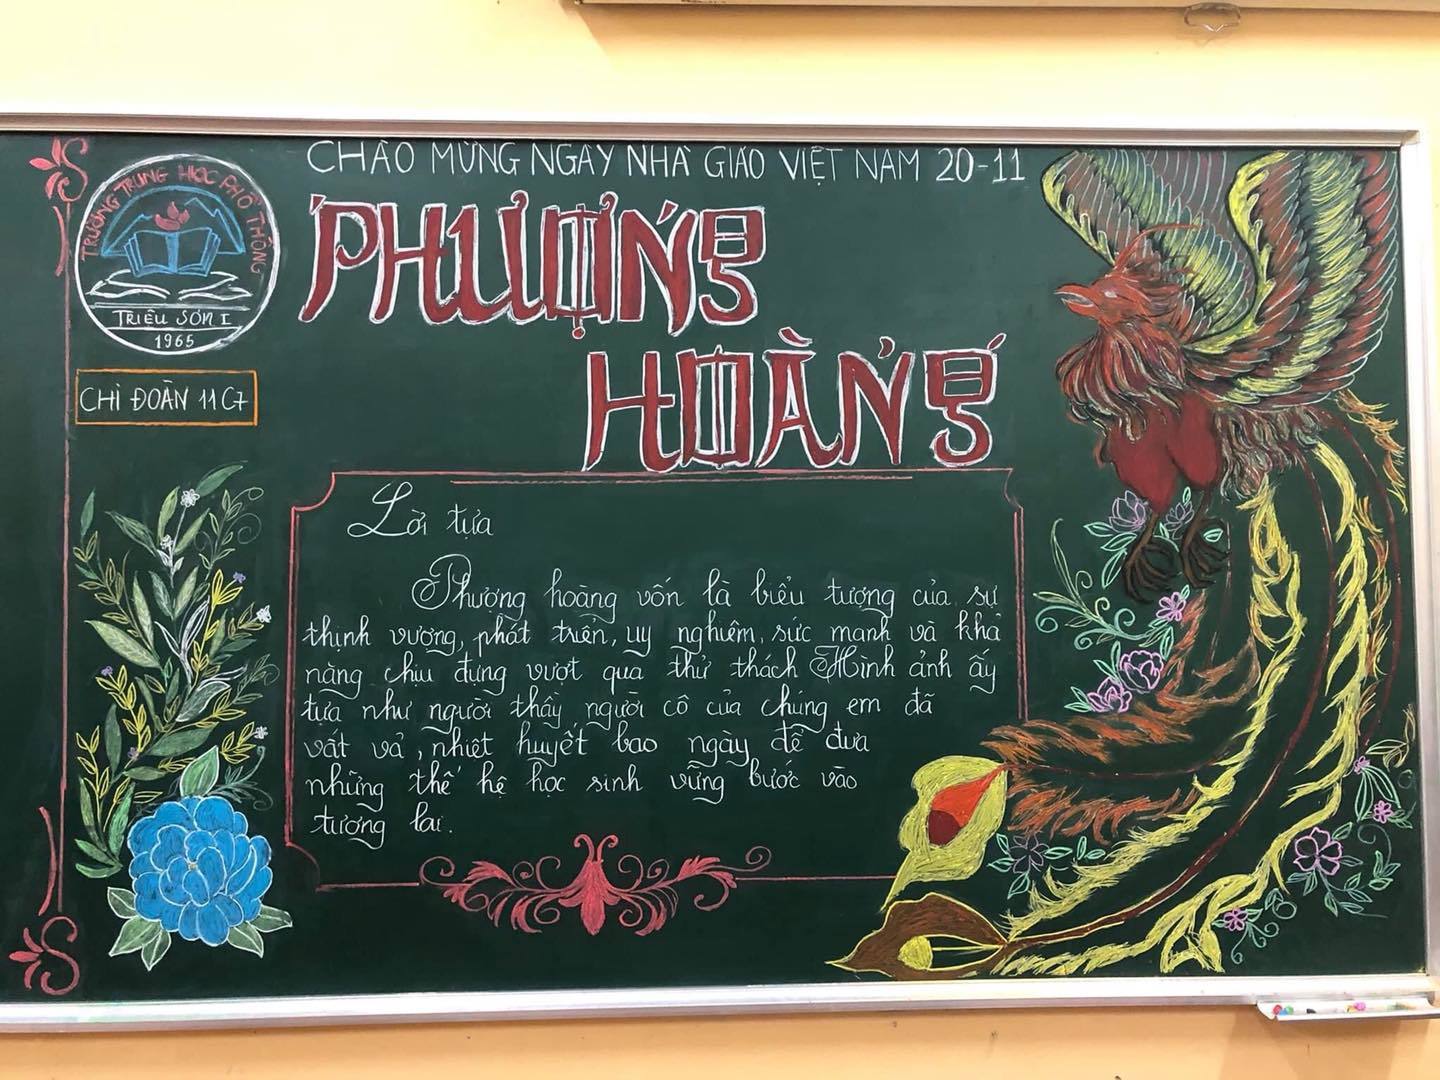 CHÀO MỪNG NGÀY NHÀ GIÁO VIỆT NAM 20-11
TRƯỜNG TRUNG HỌC PHỔ THÔNG
TRIỆU SƠN I
1965
CHI ĐOÀN 11C7
PHƯỢNG
HOÀNG
Lời tựa
Phượng hoàng vốn là biểu tượng của sự
thịnh vượng, phát triển, uy nghiêm, sức mạnh và khả
năng chịu đựng vượt qua thử thách Hình ảnh ấy
tựa như người thầy người cô của chúng em đã
vất vả, nhiệt huyết bao ngày để đưa
những thế hệ học sinh vững bước vào
tương lai.